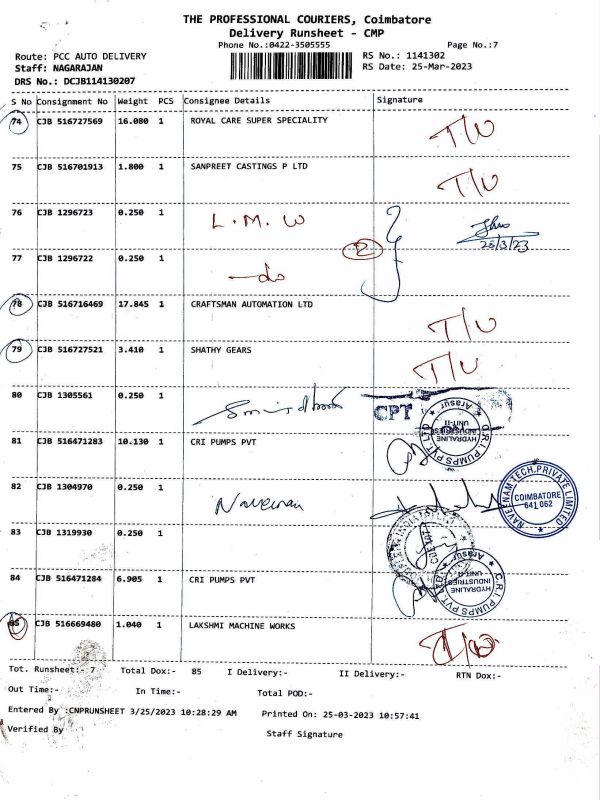 THE PROFESSIONAL COURIERS, Coimbatore
Delivery Runsheet - CMP
Phone No.:0422-3505555
Page No.:7
Route: PCC AUTO DELIVERY
RS No.: 1141302
Staff: NAGARAJAN
RS Date: 25-Mar-2023
DRS No.: DCJB114130207
S No Consignment No Weight PCS Consignee Details Signature
74 CJB 516727569 16.080 1 ROYAL CARE SUPER SPECIALITY T/U
75 CJB 516701913 1.800 1 SANPREET CASTINGS P LTD T/U
76 CJB 1296723 0.250 1 L.M.W
25/3/23
77 CJB 1296722 0.250 1 —do 2
78 CJB 516716469 17.845 1 CRAFTSMAN AUTOMATION LTD T/U
79 CJB 516727521 3.410 1 SHATHY GEARS T/U
80 CJB 1305561 0.250 1
CPT
C.R.I. PUMPS PVT. LTD Arasur HYDRALINE INDUSTRIES UNIT-II
81 CJB 516471283 10.130 1 CRI PUMPS PVT
82 CJB 1304970 0.250 1 Naveenan
NAVEENAM TECH. PRIVATE LIMITED COIMBATORE 641 062
83 CJB 1319930 0.250 1
84 CJB 516471284 6.905 1 CRI PUMPS PVT
C.R.I. PUMPS PVT. LTD Arasur HYDRALINE INDUSTRIES UNIT-II
85 CJB 516669480 1.040 1 LAKSHMI MACHINE WORKS
Tot. Runsheet:- 7 Total Dox:- 85 I Delivery:- II Delivery:- RTN Dox:-
Out Time:- In Time:- Total POD:-
Entered By :CNPRUNSHEET 3/25/2023 10:28:29 AM Printed On: 25-03-2023 10:57:41
Verified By Staff Signature